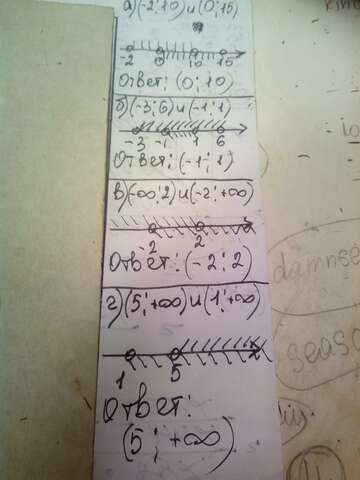 а) (-2; 10) и (0; 15)
-2 0 10 15
Ответ: (0; 10)
б) (-3; 6) и (-1; 1)
-3 -1 1 6
Ответ: (-1; 1)
в) (-∞; 2) и (-2; +∞)
-2 2
Ответ: (-2; 2)
г) (5; +∞) и (1; +∞)
1 5
Ответ:
(5; +∞)
damnse
seaso